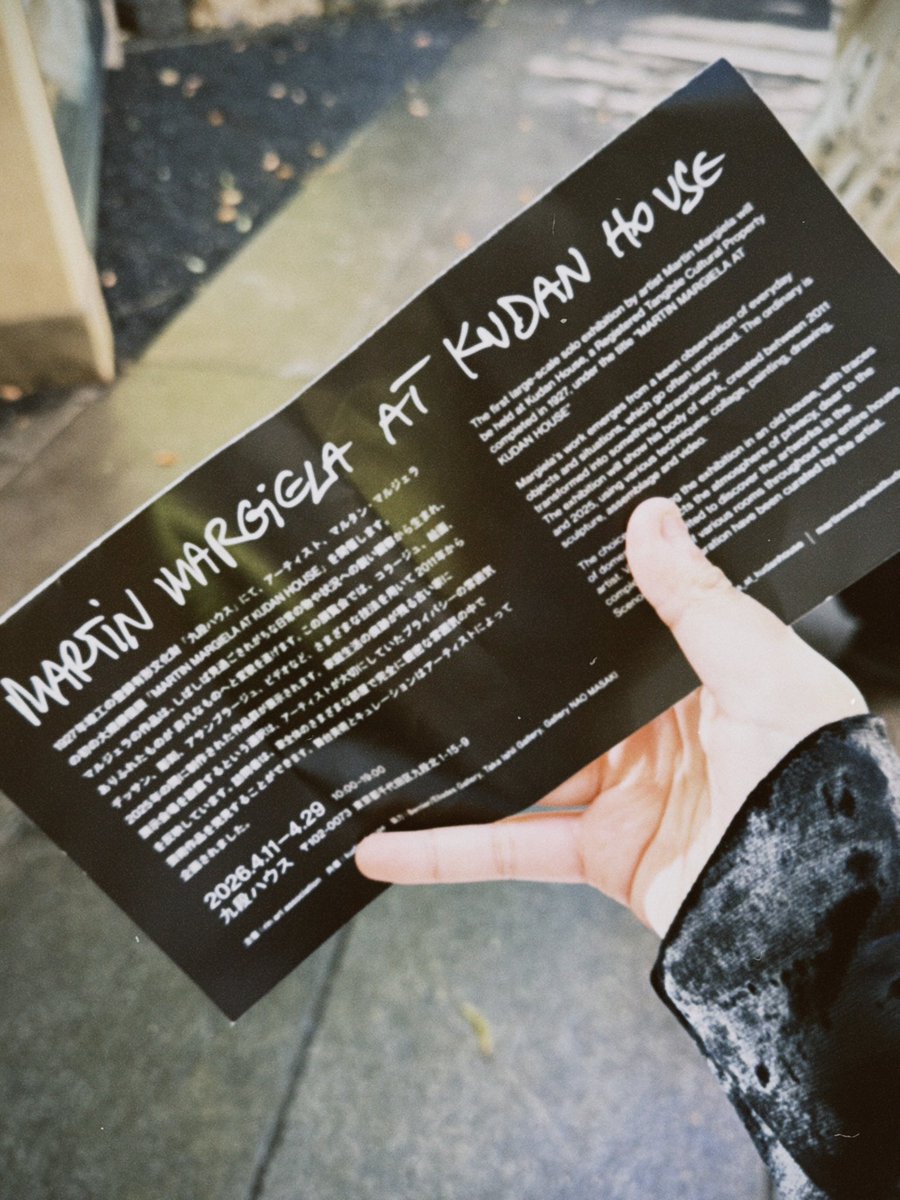 MARTIN MARGIELA AT KUDAN HOUSE
1927年竣工の登録有形文化財「九段ハウス」にて、アーティスト、マルタン マルジェラ
の初の大規模個展「MARTIN MARGIELA AT KUDAN HOUSE」を開催します。
マルジェラの作品は、しばしば見過ごされがちな日常の物や状況への鋭い観察から生まれ、
ありふれたものが非凡なものへと変容を遂げます。この展覧会では、コラージュ、絵画、
デッサン、彫刻、アサンブラージュ、ビデオなど、さまざまな技法を用いて2011年から
2025年の間に制作された作品が展示されます。
アーティストが大切にしていたプライバシーの雰囲気
アーティストによって
企画されました。
2026.4.11–4.29 10:00-19:00
九段ハウス 〒102-0073 東京都千代田区九段北1-15-9
Taka Ishii Gallery, Gallery NAO MASAKI
The first large-scale solo exhibition by artist Martin Margiela will
be held at Kudan House, a Registered Tangible Cultural Property
completed in 1927, under the title "MARTIN MARGIELA AT
KUDAN HOUSE"
Margiela's work emerges from a keen observation of everyday
objects and situations, which go often unnoticed. The ordinary is
transformed into something extraordinary.
The exhibition will show his body of work, created between 2011
and 2025, using various techniques: collage, painting, drawing,
sculpture, assemblage and video.
The choice the exhibition in an old house, with traces
of dome the atmosphere of privacy, dear to the
artist. to discover the artworks in the
comple various rooms throughout the entire house.
Scen ation have been curated by the artist.